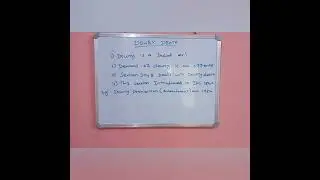 DOWRY DEATH
1) Dowry is a Social evil
2) Demand of dowry is an offence
3) Section 304 B deals with dowry death
4) This section Introduced in IPC
by Dowry Prohibition (Amendment) Act 1986